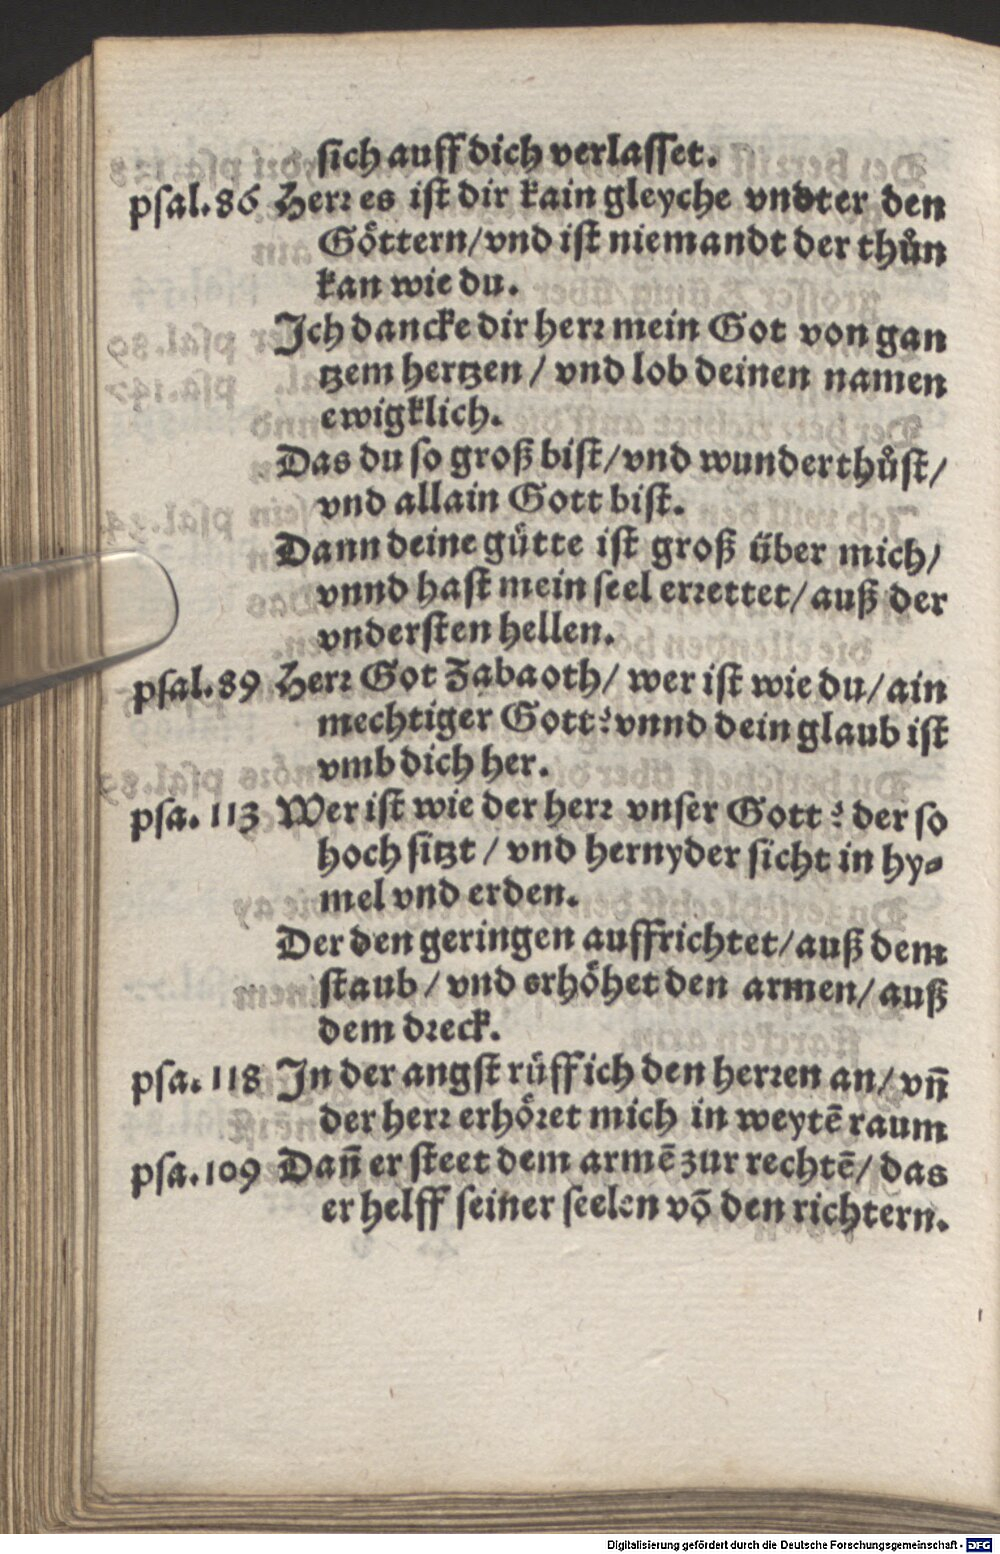 sich auff dich verlasset.
psal.86 Herr es ist dir kain gleyche vndter den
Göttern/vnd ist niemandt der thůn
kan wie du.
Ich dancke dir herr mein Got von gan
tzem hertzen / vnd lob deinen namen
ewigklich.
Das du so groß bist/vnd wunder thůst/
vnd allain Gott bist.
Dann deine gütte ist groß über mich/
vnnd hast mein seel errettet/ auß der
vndersten hellen.
psal.89 Herr Got Zabaoth/ wer ist wie du/ ain
mechtiger Gott? vnnd dein glaub ist
vmb dich her.
psa. 113 Wer ist wie der herr vnser Gott ? der so
hoch sitzt / vnd hernyder sicht in hy-
mel vnd erden.
Der den geringen auffrichtet/ auß dem
staub / vnd erhöhet den armen/ auß
dem dreck.
psa. 118 In der angst rüff ich den herren an/ vn̄
der herr erhöret mich in weytē raum
psa.109 Dan̄ er steet dem armē zur rechtē/ das
er helff seiner seelen vō den richtern.
Digitalisierung gefördert durch die Deutsche Forschungsgemeinschaft - DFG